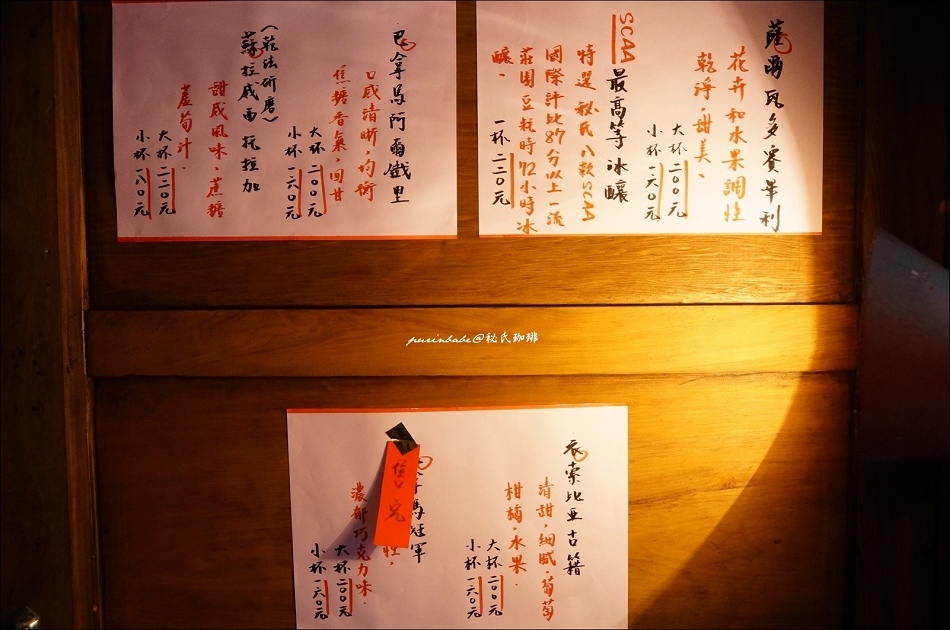 巴拿馬阿爾鐵里
口感清晰，均衡
焦糖香氣，回甘
大杯二〇〇元
小杯一六〇元
(乾法研磨)
蘇拉威西 托拉加
甜感風味，蔗糖
蘆筍汁．
大杯二二〇元
小杯一八〇元
薩爾瓦多賽華利
花卉和水果調性
乾淨，甜美、
大杯二〇〇元
小杯一六〇元
SCAA 最高等 冰釀
特選 秘氏八款SCAA
國際評比87分以上一流
莊園豆耗時72小時冰
釀．
一杯 二二〇元
purinbabe@秘氏珈琲
衣索比亞古籍
清甜，細膩，葡萄
柑橘，水果．
大杯二〇〇元
小杯一六〇元
馬冠軍
性，
售完
濃郁巧克力味．
大杯二〇〇元
小杯一六〇元